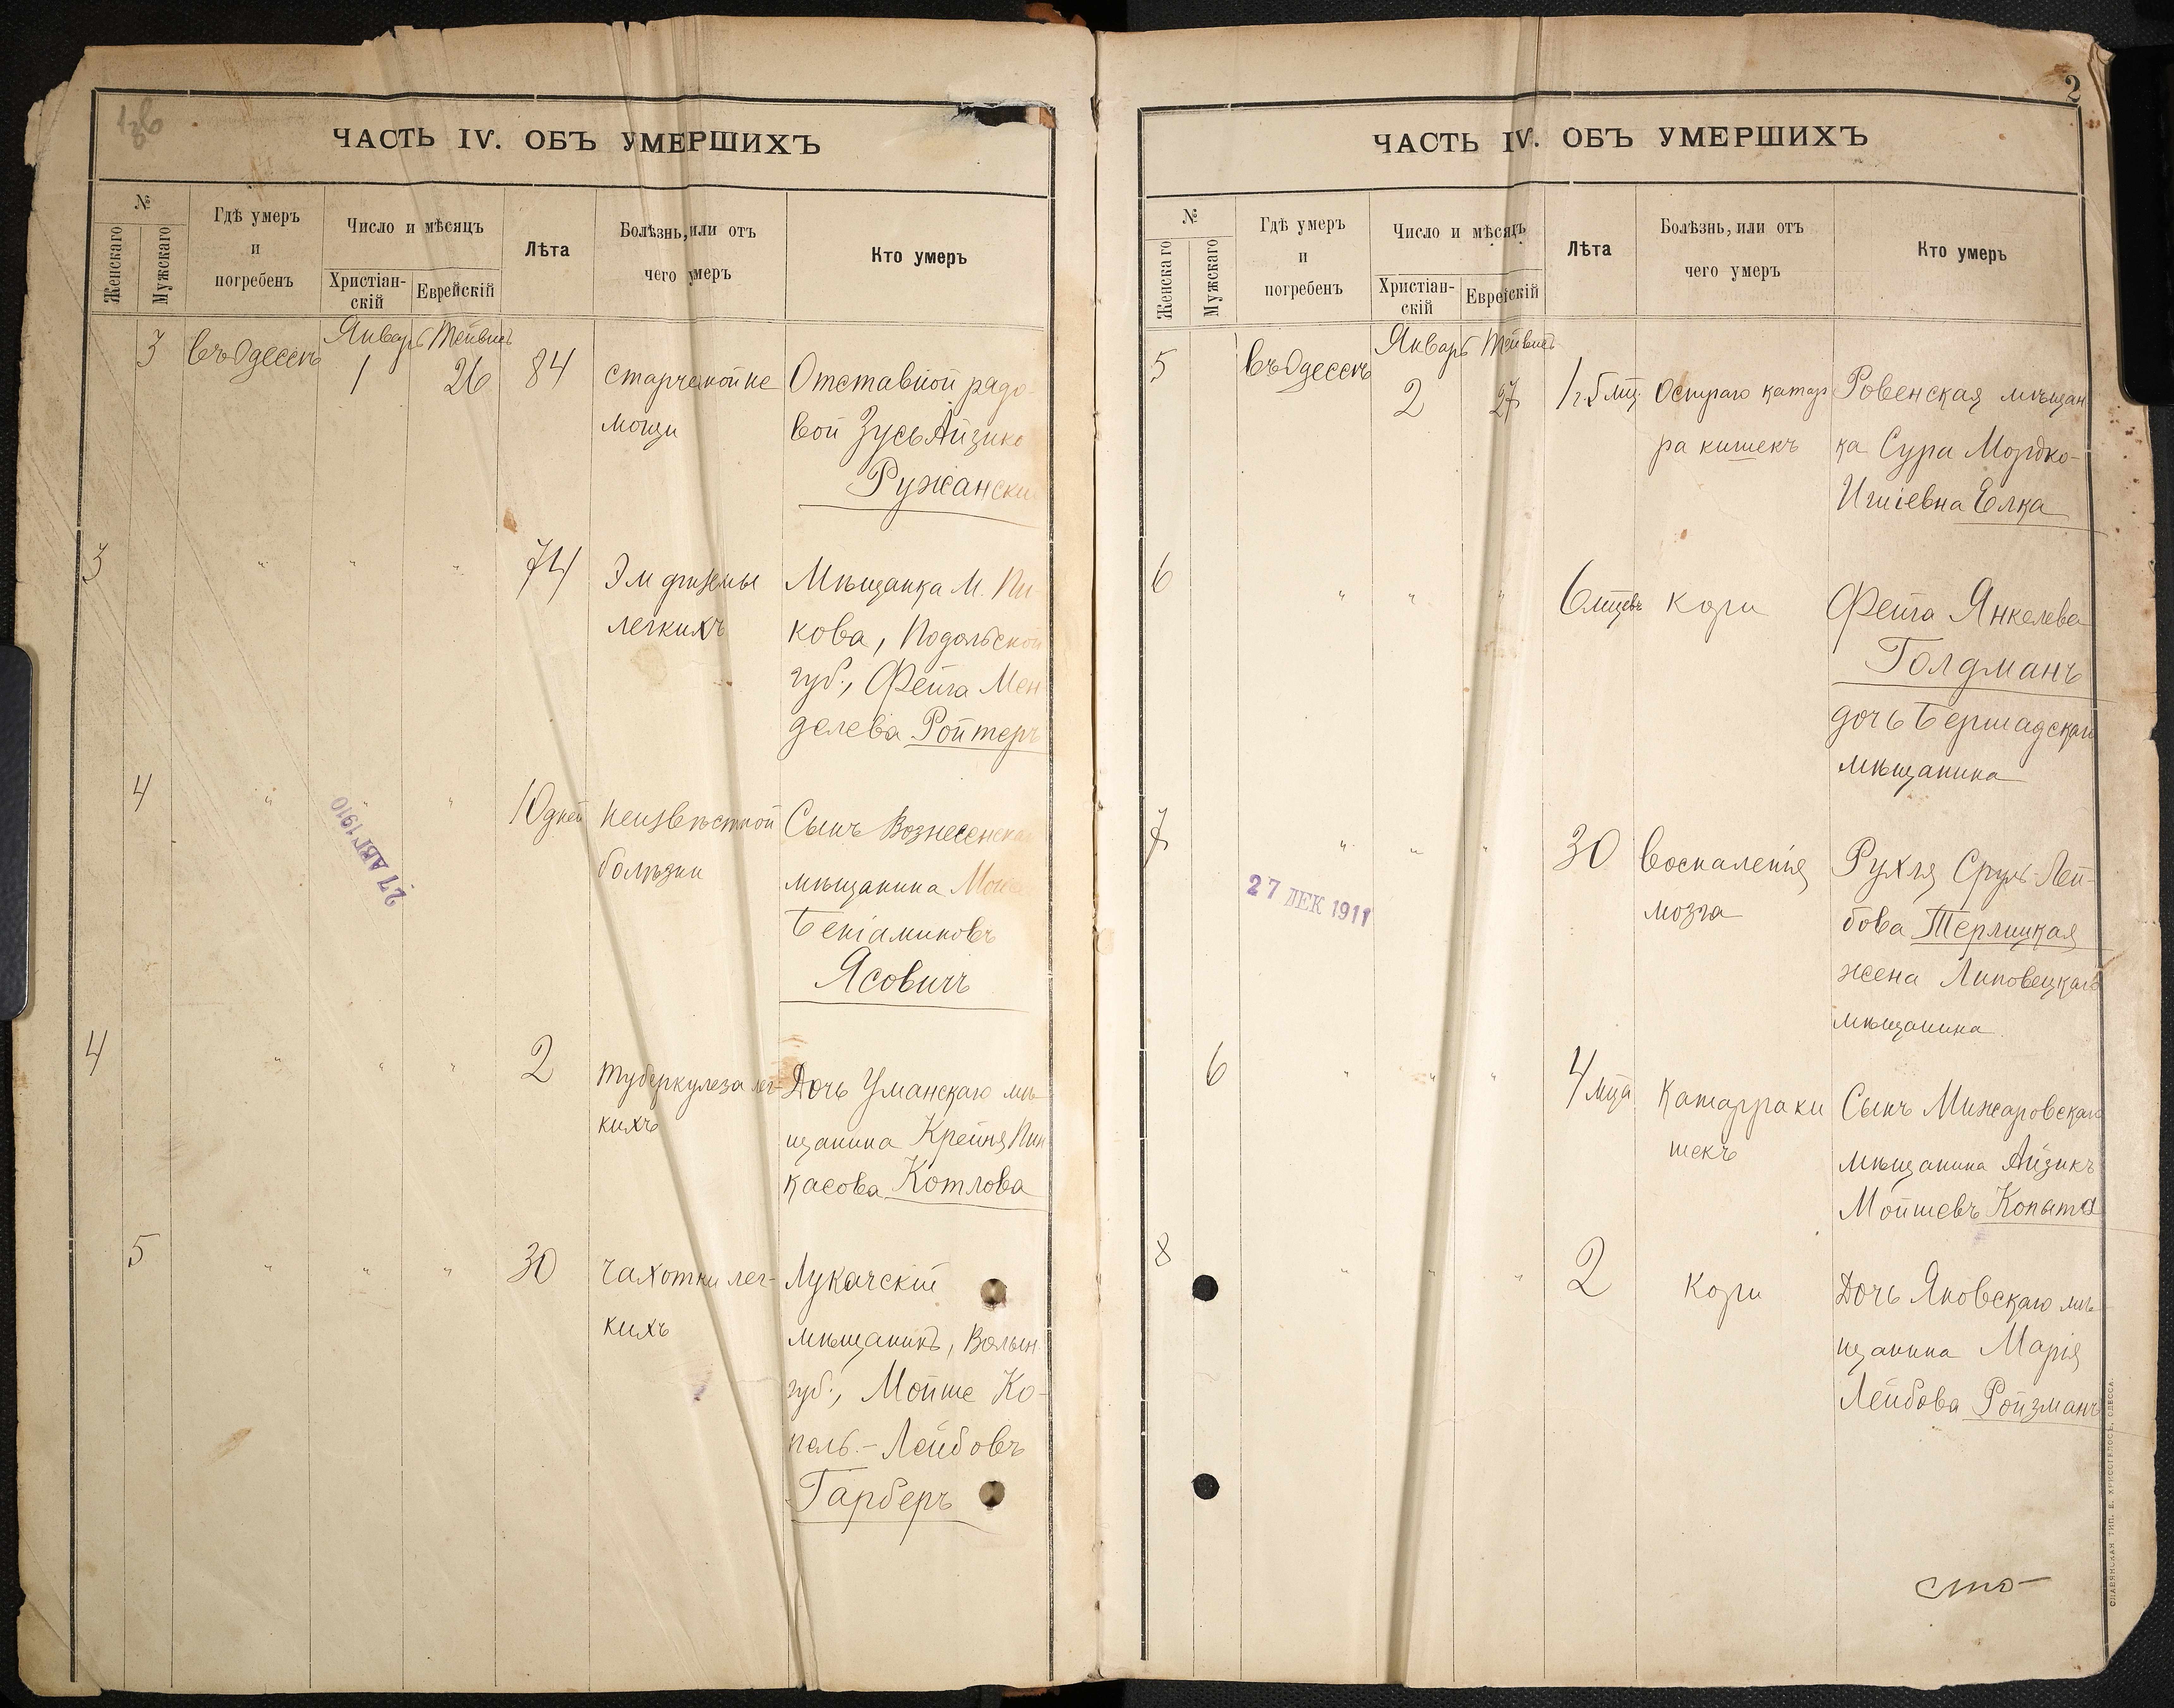 ЧАСТЬ IV. ОБЪ УМЕРШИХЪ
№
Женскаго
Мужскаго
Гдѣ умеръ
и
погребенъ
Число и мѣсяцъ
Христіан-
скій
Еврейскій
Лѣта
Болѣзнь, или отъ
чего умеръ
Кто умеръ
3 въ Одессѣ Январь 1 Тейвисъ 26 84
старческой не
мощи
Отставной рядо
вой Зусь Айзико
Ружански
3 " " " 74
Эмфиземы
легкихъ
Мѣщанка М. Пи
кова, Подольской
губ., Фейга Мен
делева Ройтеръ
4 " " " 10 дней
неизвѣстной
болѣзни
Сынъ Вознесенска
мѣщанина
Беніаминовъ
Ясовичъ
27 АВГ 1910
4 " " " 2
туберкулеза лег-
кихъ
Дочь Уманскаго мѣ
щанина Крейня Пин
касова Котлова
5 " " " 30
чахотки лег-
кихъ
Лукачскій
мѣщанинъ, Волын.
губ., Мойше Ко-
пель.-Лейбовъ
Гарберъ
2
ЧАСТЬ IV. ОБЪ УМЕРШИХЪ
№
Женскаго
Мужскаго
Гдѣ умеръ
и
погребенъ
Число и мѣсяцъ
Христіан-
скій
Еврейскій
Лѣта
Болѣзнь, или отъ
чего умеръ
Кто умеръ
5 въ Одессѣ Январь 2 Тейвисъ 27 1 г. 5 мц.
Остраго катар
ра кишекъ
Ровенская мѣщан
ка Сура Мордко-
Ишіевна Елка
6 " " " 6 мцевъ
кори
Фейга Янкелева
Голдманъ
дочь Бершадскаго
мѣщанина
7 " " " 30
воспаленія
мозга
Рухля Сруль-Лей-
бова Терлицкая
жена Липовецкаго
мѣщанина
27 ДЕК 1911
6 " " " 4 мца
Катарра ки
шекъ
Сынъ Мижаровскаго
мѣщанина Айзикъ
Мойшевъ Копыта
8 " " " 2
Кори
Дочь Яновскаго мѣ-
щанина Марія
Лейбова Ройзманъ
СЛАВЯНСКАЯ ТИП. Е. ХРИСОГЕЛОСЪ, ОДЕССА.